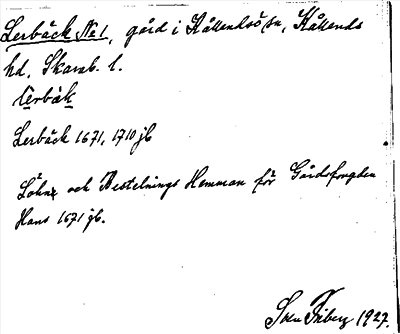 Lerbäck No 1, gård i Kållandsö sn, Kållands
hd, Skarab. l.
lerbäk
Lerbäck 1671, 1710 jb
Löhnz och Bestelnings Hemman för Gårdsfougden
Hans 1671 jb.
Sven Friberg 1927.